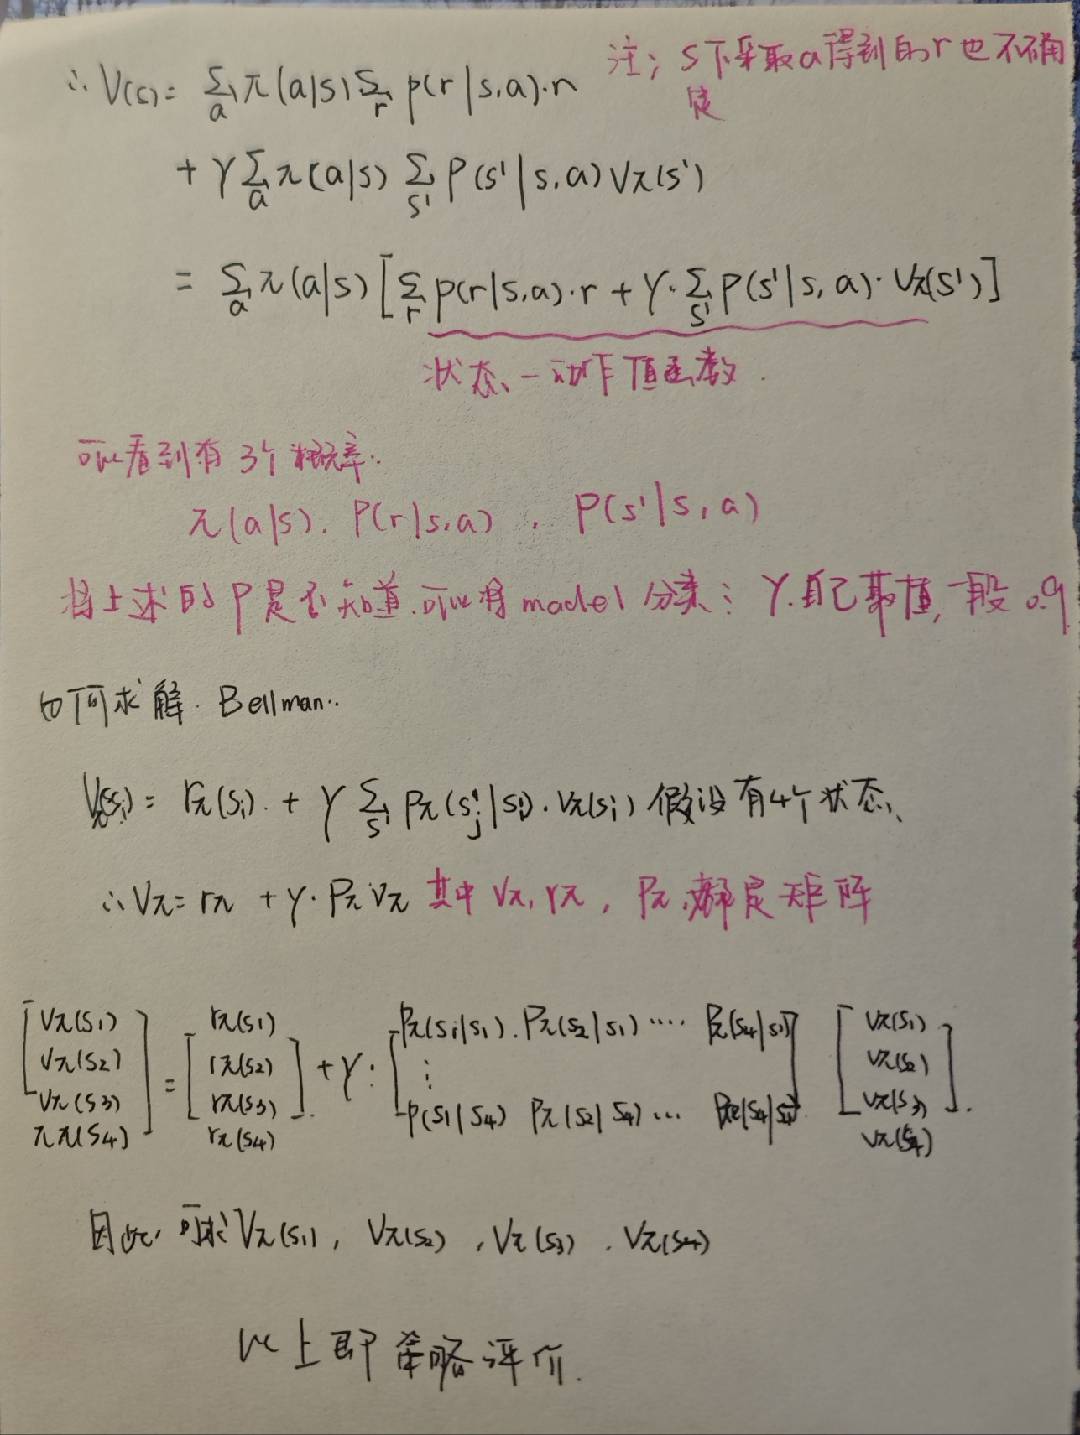 ∴ V(s) = Σ_a π(a|s) Σ_r p(r|s,a)·r 注：s下采取a得到的r也不确定
+ γ Σ_a π(a|s) Σ_s' P(s'|s,a) Vπ(s')
= Σ_a π(a|s) [Σ_r p(r|s,a)·r + γ·Σ_s' P(s'|s,a)·Vπ(s')]
状态-动作值函数.
可以看到有3个概率.
π(a|s). P(r|s,a), P(s'|s,a)
将上述的P是否知道.可以将model分类; γ.自己取值,一般0.9
如何求解. Bellman..
Vπ(si) = rπ(si). + γ Σ_s' Pπ(s'j|si)·Vπ(si) 假设有4个状态、
∴ Vπ = rπ + γ·Pπ Vπ 其中 Vπ, rπ, Pπ,都是矩阵
[Vπ(s1) = [rπ(s1) + γ· [Pπ(s1|s1). Pπ(s2|s1) ···· Pπ(s4|s1)] [Vπ(s1)
Vπ(s2) rπ(s2) ⋮ Vπ(s2)
Vπ(s3) rπ(s3) P(s1|s4) Pπ(s2|s4) ··· Pπ(s4|s4) Vπ(s3)].
ππ(s4)] rπ(s4) Vπ(s4)
因此 可求 Vπ(s1), Vπ(s2), Vπ(s3), Vπ(s4)
以上即策略评价.